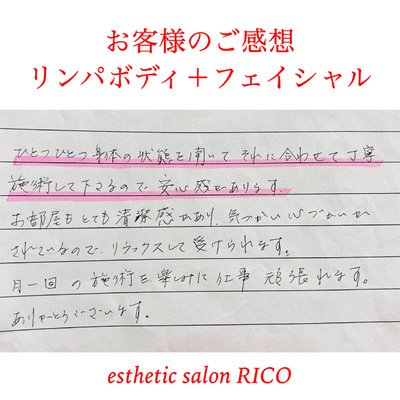 お客様のご感想
リンパボディ＋フェイシャル
ひとつひとつ身体の状態を聞いて、それに合わせて丁寧
施術して下さるので、安心感があります。
お部屋もとても清潔感があり、気づかい心づかいが
されているので、リラックスして受けられます。
月一回の施術を楽しみに仕事頑張れます。
ありがとうございます。
esthetic salon RICO